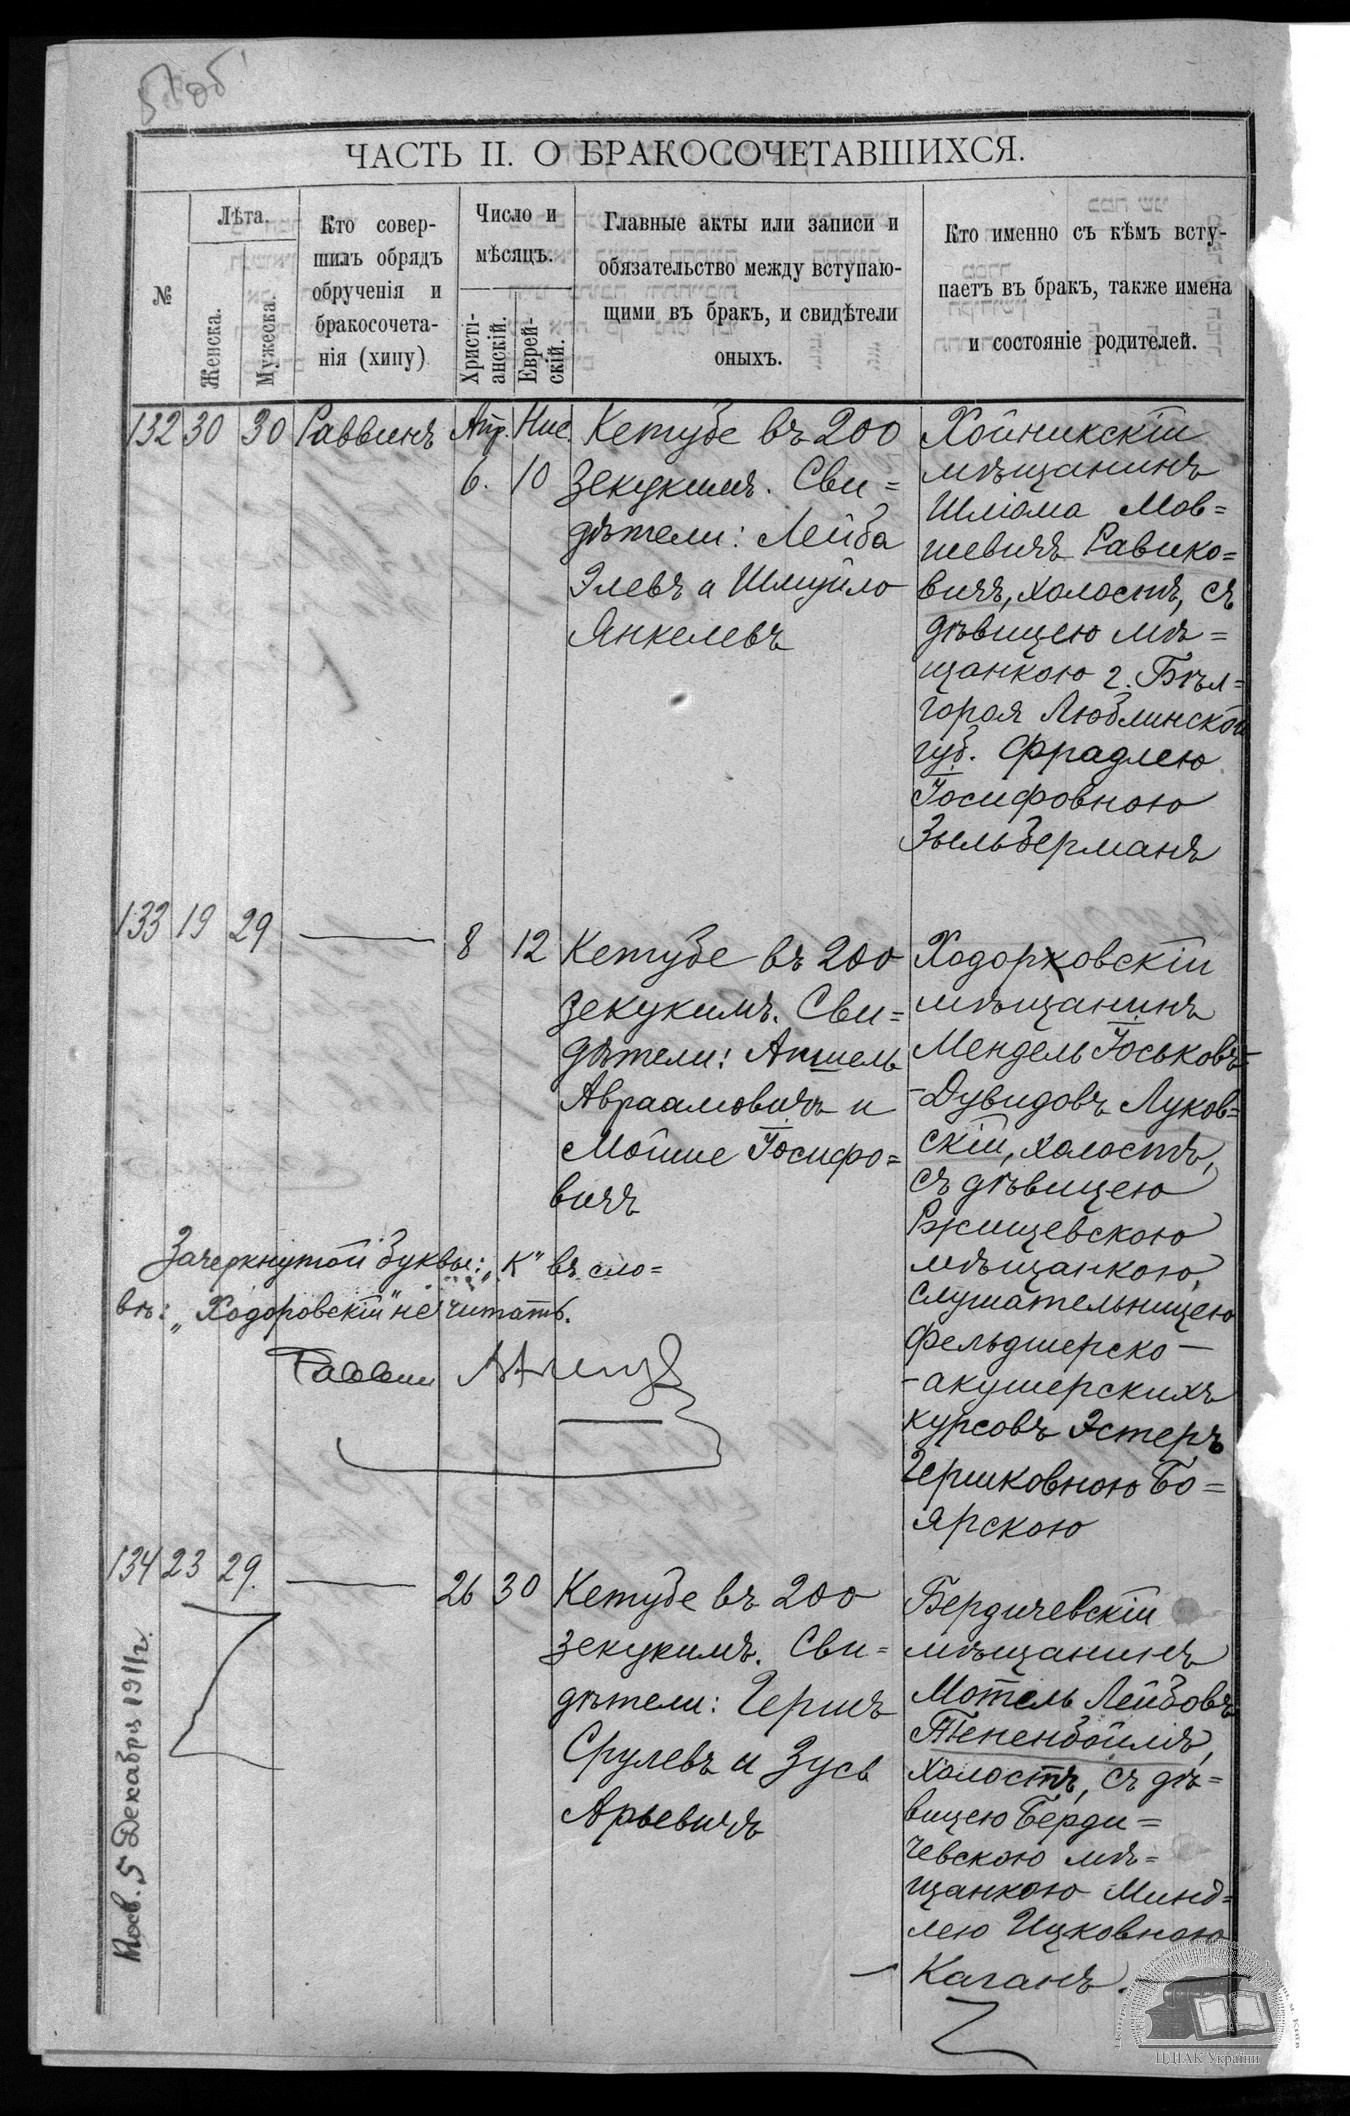 ЧАСТЬ II. О БРАКОСОЧЕТАВШИХСЯ.
№
Лѣта.
Женска.
Мужеска.
Кто совер-
шилъ обрядъ
обрученія и
бракосочета-
нія (хипу)
Число и
мѣсяцъ.
Христі-
анскій.
Еврей-
скій.
Главные акты или записи и
обязательство между вступаю-
щими въ бракъ, и свидѣтели
оныхъ.
Кто именно съ кѣмъ всту-
паетъ въ бракъ, также имена
и состояніе родителей.
132 30 30 Раввинъ Апр. Нис.
6. 10
Кетубе въ 200
зекукимъ. Сви=
дѣтели: Лейба
Элевъ и Шмуйло
Янкелевъ
Хойникскій
мѣщанинъ
Шліома Мов=
шевичъ Равико=
вичъ, холостъ, съ
дѣвицею мѣ=
щанкою г. Бѣл=
горая Люблинской
губ. Фрадлею
Іосифовною
Зыльберманъ
133 19 29 — 8 12
Кетубе въ 200
зекукимъ. Сви=
дѣтели: Аншель
Авраамовичъ и
Мойше Іосифо=
вичъ
Ходорковскій
мѣщанинъ
Мендель Іоськовъ-
-Дувидовъ Луков=
скій, холостъ,
съ дѣвицею
Ржищевскою
мѣщанкою,
слушательницею
фельдшерско-
-акушерскихъ
курсовъ Эстеръ
Гершковною Бо=
ярскою
Зачеркнутой буквы: „К" въ сло=
вѣ: „Ходоровскій" не читать.
Раввин
134 23 29. — 26 30
Кетубе въ 200
зекукимъ. Сви=
дѣтели: Гершъ
Срулевъ и Зусь
Арьевичъ
Бердичевскій
мѣщанинъ
Мотель Лейбовъ
Тененбоймъ,
холостъ, съ дѣ=
вицею Берди=
чевскою мѣ=
щанкою Минд=
лею Ицковною
Каганъ.
5 Декабря 1911 г.
ЦДІАК України